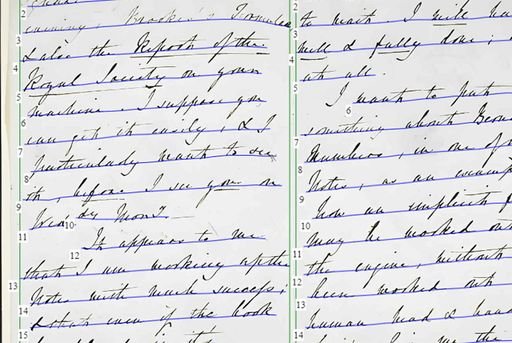 evening, Brooke's Formulae,
& also the Report of the
Royal Society on your
machine. I suppose you
can get it easily, & I
particularly want to see
it, before I see you on
Wed'dy Morn'g.
It appears to me
that I am working up the
Notes with much success;
& that even if the book
to wait. I will ha
well & fully done; 
at all.
I want to put
something about Bern
Numbers, in one of m
Notes, as an example
how an implicit f
may be worked out
the engine, without
been worked out
human head & hand